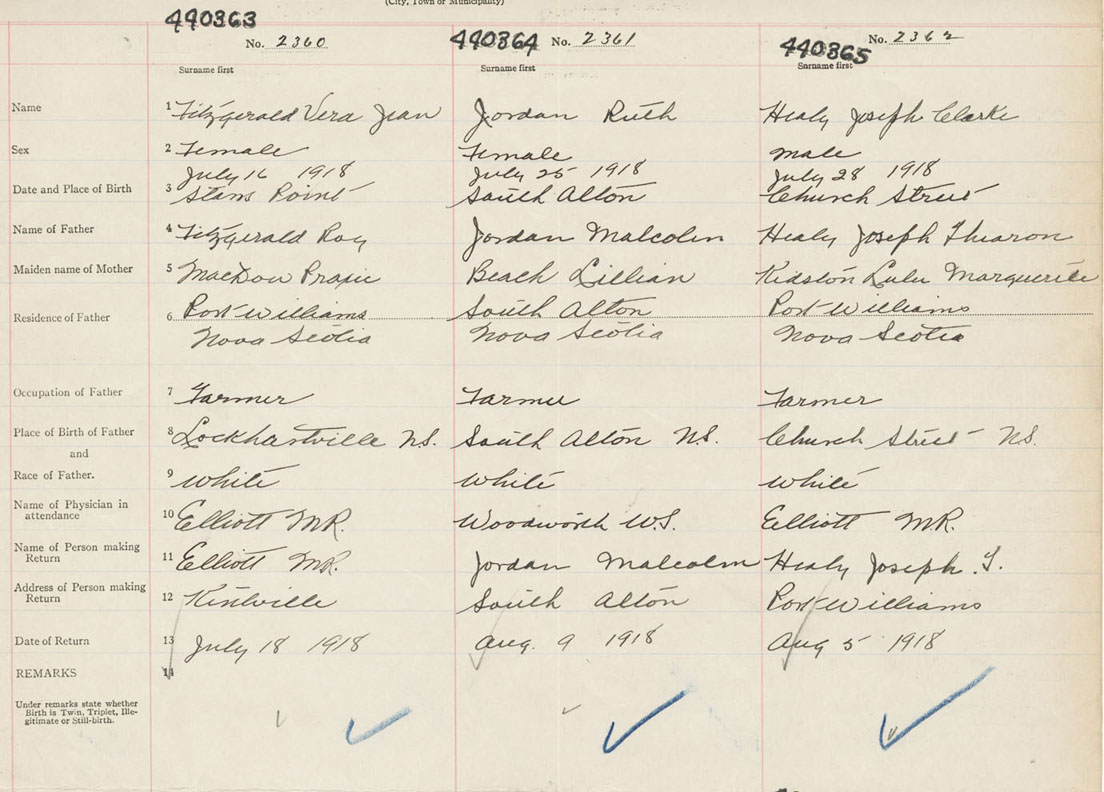 (City, Town or Municipality)
440363 No. 2360 440364 No. 2361 440365 No. 2362
Surname first Surname first Surname first
Name 1 Fitzgerald Vera Jean Jordan Ruth Healy Joseph Clarke
Sex 2 Female Female Male
July 16 1918 July 25 1918 July 28 1918
Date and Place of Birth 3 Starrs Point South Alton Church Street
Name of Father 4 Fitzgerald Roy Jordan Malcolm Healy Joseph Thearon
Maiden name of Mother 5 Beach Lillian Kidston Lulu Marguerite
Residence of Father 6 Port Williams South Alton Port Williams
Nova Scotia Nova Scotia Nova Scotia
Occupation of Father 7 Farmer Farmer Farmer
Place of Birth of Father 8 Lockhartville N.S. South Alton N.S. Church Street N.S.
and
Race of Father. 9 White White White
Name of Physician in
attendance 10 Elliott M.R. Woodworth W.S. Elliott M.R.
Name of Person making
Return 11 Elliott M.R. Jordan Malcolm Healy Joseph T.
Address of Person making
Return 12 Kentville South Alton Port Williams
Date of Return 13 July 18 1918 Aug. 9 1918 Aug 5 1918
REMARKS 14
Under remarks state whether
Birth is Twin, Triplet, Ille-
gitimate or Still-birth.